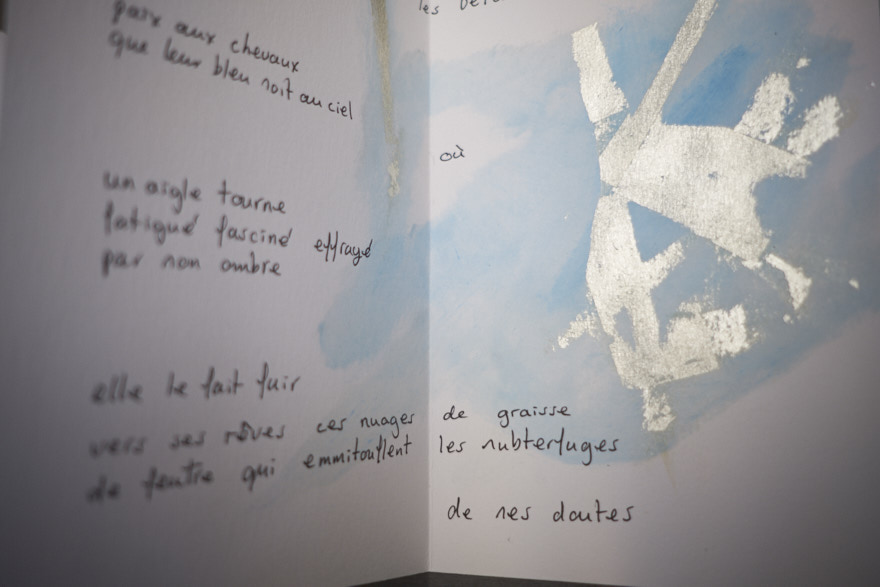 les
paix aux chevaux
que leur bleu soit au ciel
où
un aigle tourne
fatigué fasciné effrayé
par son ombre
elle le fait fuir
vers ses rêves ces nuages de graisse
de feutre qui emmitouflent les subterfuges
de ses doutes